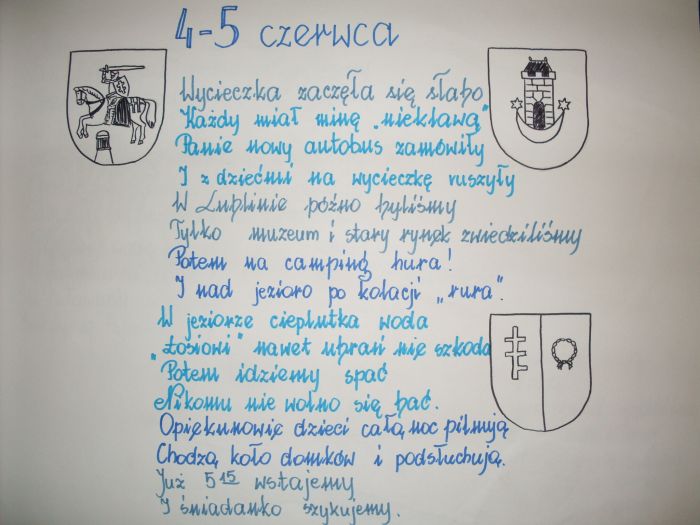 4-5 czerwca
Wycieczka zaczęła się słabo
Każdy miał minę „niekławą"
Panie nowy autobus zamówiły
I z dziećmi na wycieczkę ruszyły
W Lublinie późno byliśmy
Tylko muzeum i stary rynek zwiedziliśmy
Potem na camping hura!
I nad jezioro po kolacji „rura".
W jeziorze cieplutka woda
„Łosiowi" nawet ubrań nie szkoda
Potem idziemy spać
Nikomu nie wolno się bać.
Opiekunowie dzieci całą noc pilnują
Chodzą koło domków i podsłuchują.
Już 5 15 wstajemy
I śniadanko szykujemy.